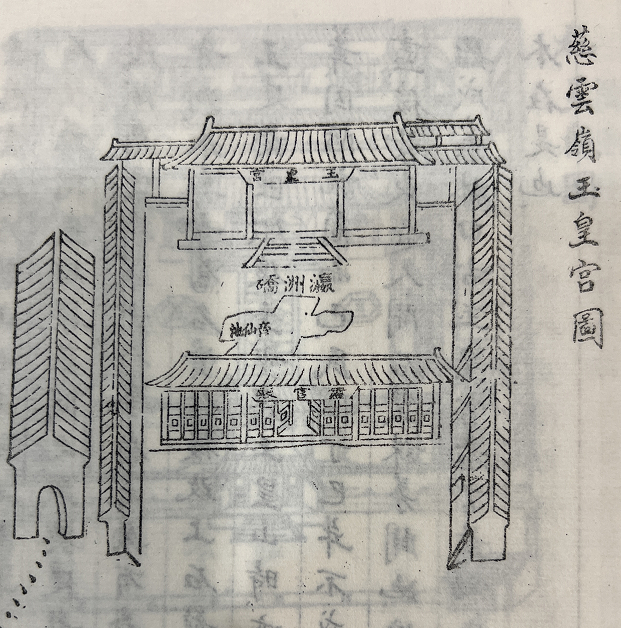 慈雲嶺玉皇宮圖
玉皇宮
瀛洲礄
仙池
靈官殿